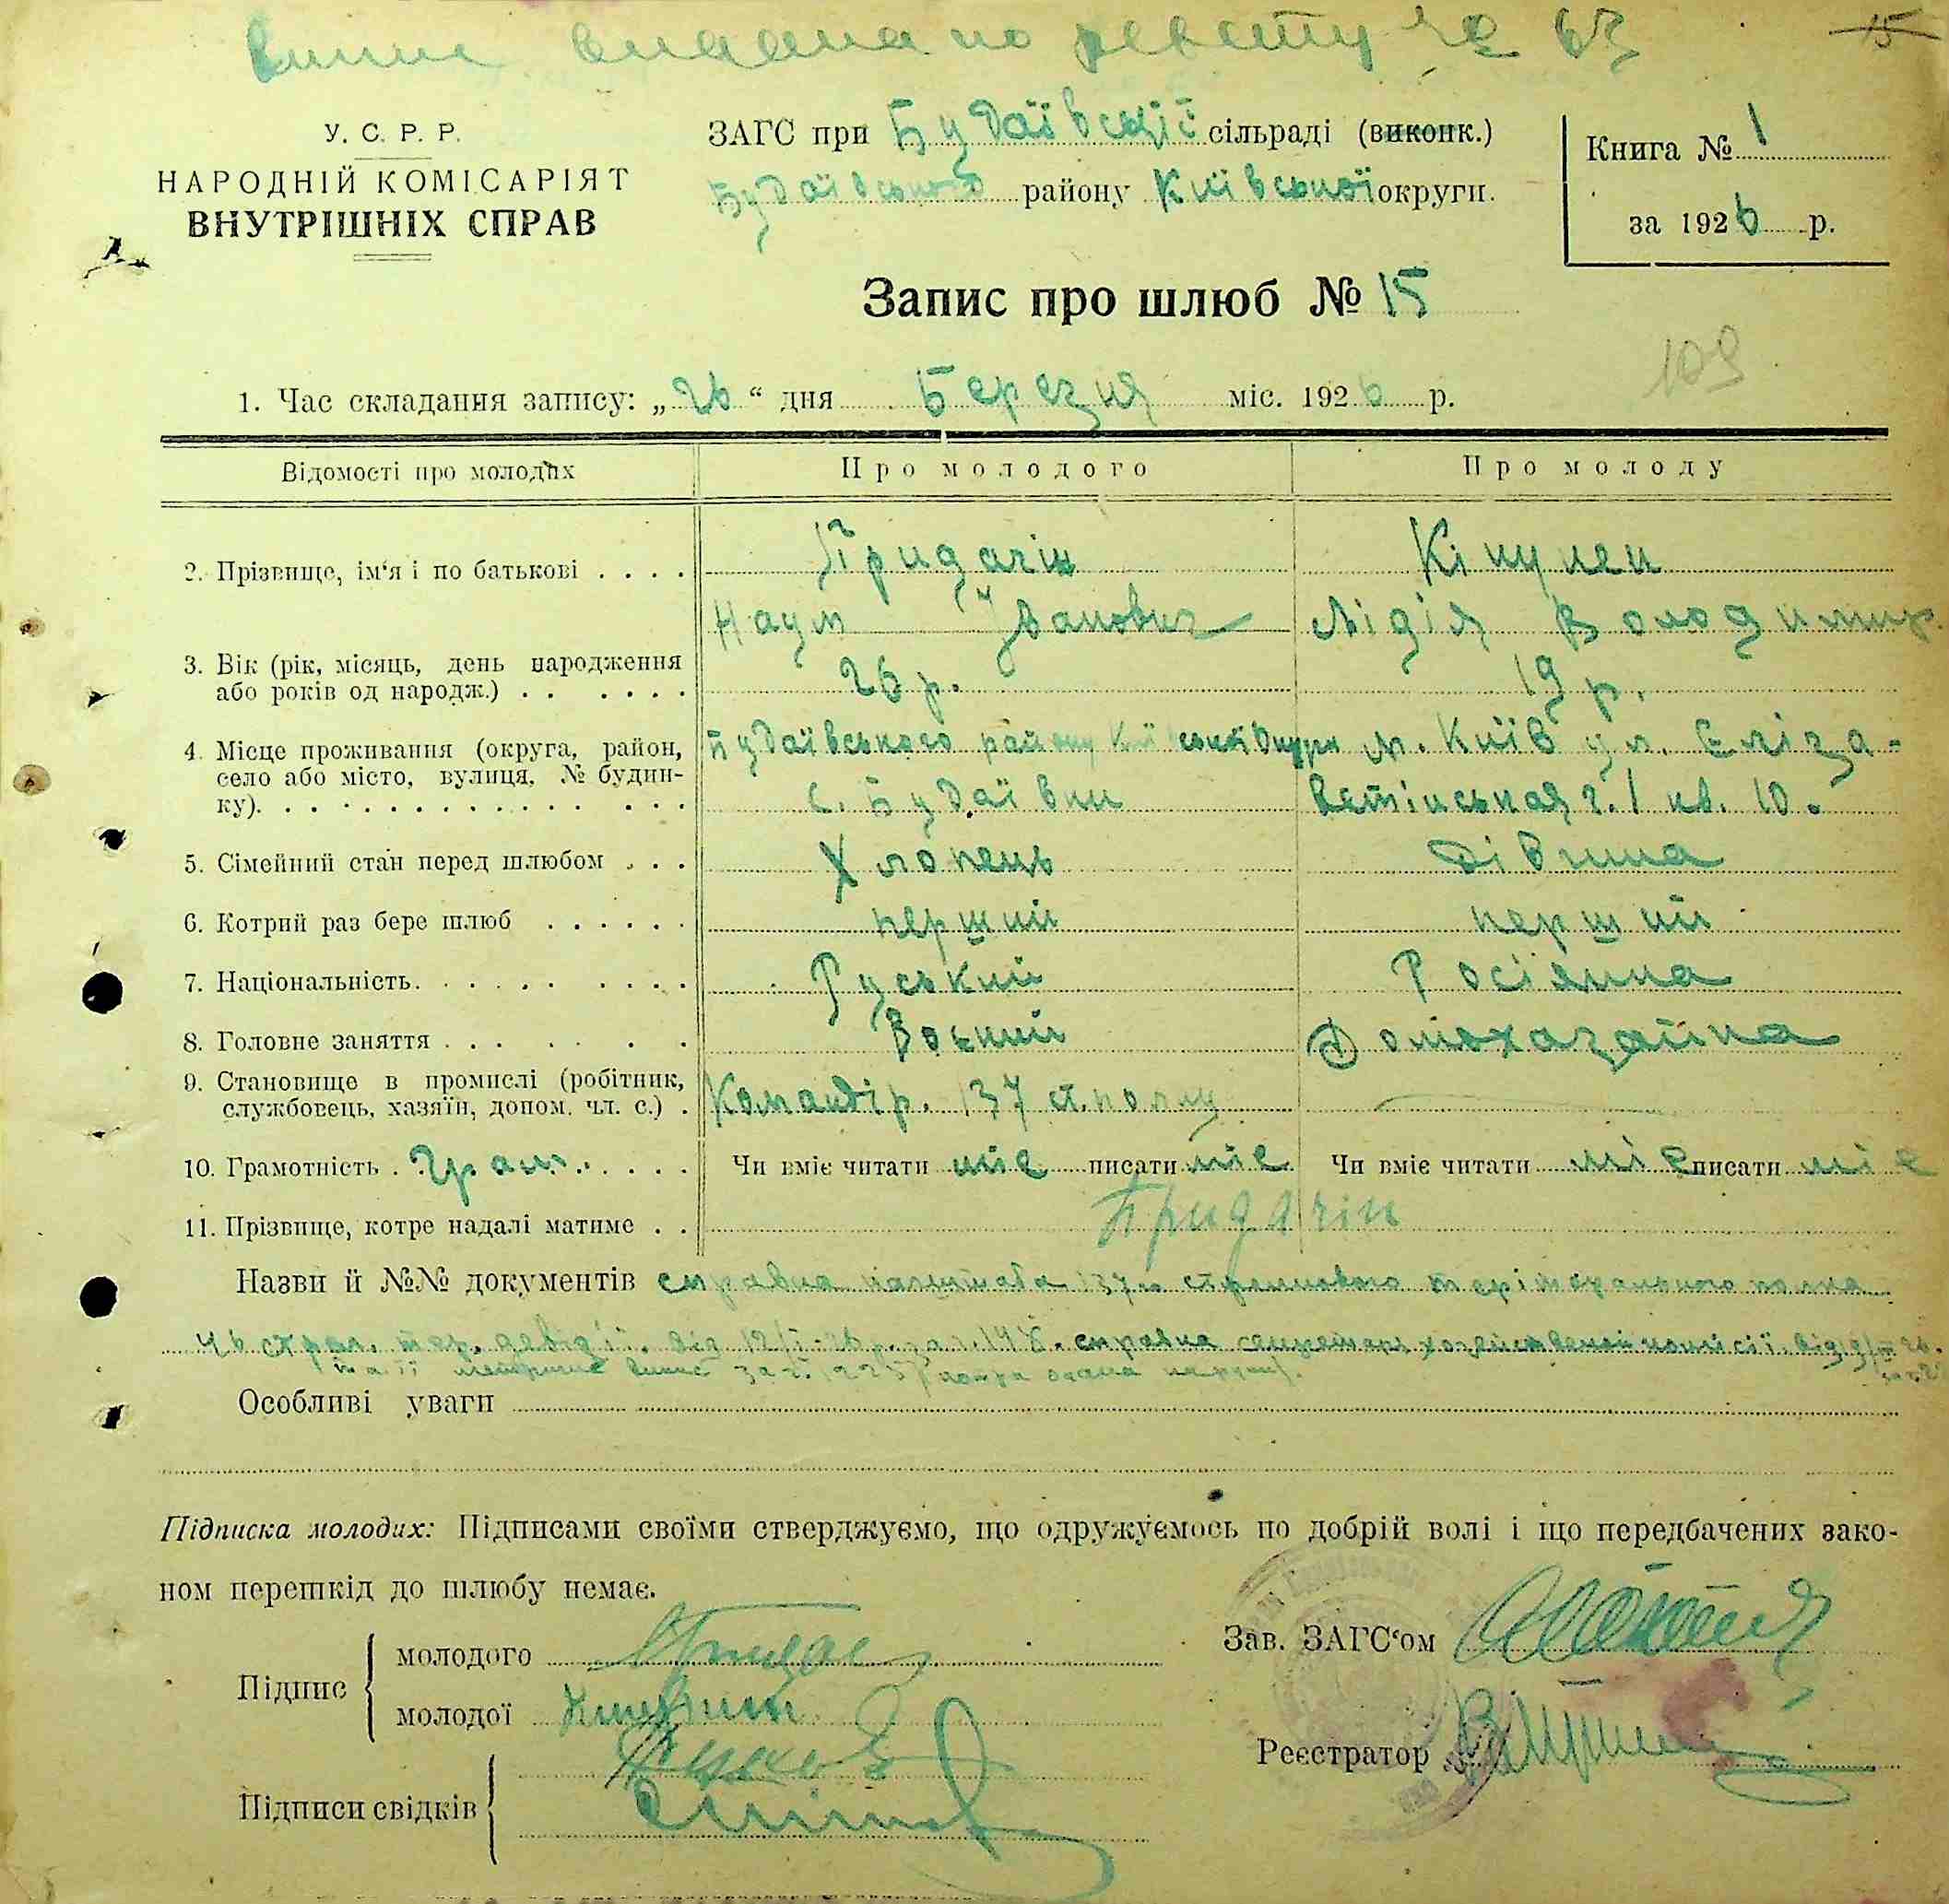 Випис видана по реєстру № 63
15
У. С. Р. Р.
НАРОДНІЙ КОМІСАРІЯТ
ВНУТРІШНІХ СПРАВ
ЗАГС при Будаївській сільраді (виконк.)
Будаївського району Київської округи.
Книга № 1
за 1926 р.
Запис про шлюб № 15
109
1. Час складання запису: „26“ дня Березня міс. 1926 р.
Відомості про молодих
Про молодого
Про молоду
2. Прізвище, ім‘я і по батькові . . . .
Придачін
Наум Іванович
Лідія Володимир.
3. Вік (рік, місяць, день народження
або років од народж.) . . . . . .
26 р.
19 р.
4. Місце проживання (округа, район,
село або місто, вулиця, № будин-
ку). . . . . . . . . . . . . . .
Будаївського району Київської Округи
с. Будаївки
м. Київ ул. Єліза-
ветінськая г. 1 кв. 10.
5. Сімейний стан перед шлюбом . . .
Хлопець
Дівчина
6. Котрий раз бере шлюб . . . . . .
перший
перший
7. Національність. . . . . . . . . .
Руський
Росіянка
8. Головне заняття . . . . . .
Воєнний
Домохазайка
9. Становище в промислі (робітник,
службовець, хазяїн, допом. чл. с.) .
Командір. 137 ст. полку
10. Грамотність . Грам. . . . . .
Чи вміє читати міє писати міє
Чи вміє читати міє писати міє
11. Прізвище, котре надалі матиме . .
Придачін
Назви й №№ документів справка 137го стрілкового терітор. полка
46 стрел. тер. дивізії. від справка секретаря хозяйственой комісії. від
та її метричне випис за №
Особливі уваги
Підписка молодих: Підписами своїми стверджуємо, що одружуємось по добрій волі і що передбачених зако-
ном перешкід до шлюбу немає.
Підпис
молодого
молодої
Підписи свідків
Зав. ЗАГС‘ом
Реєстратор